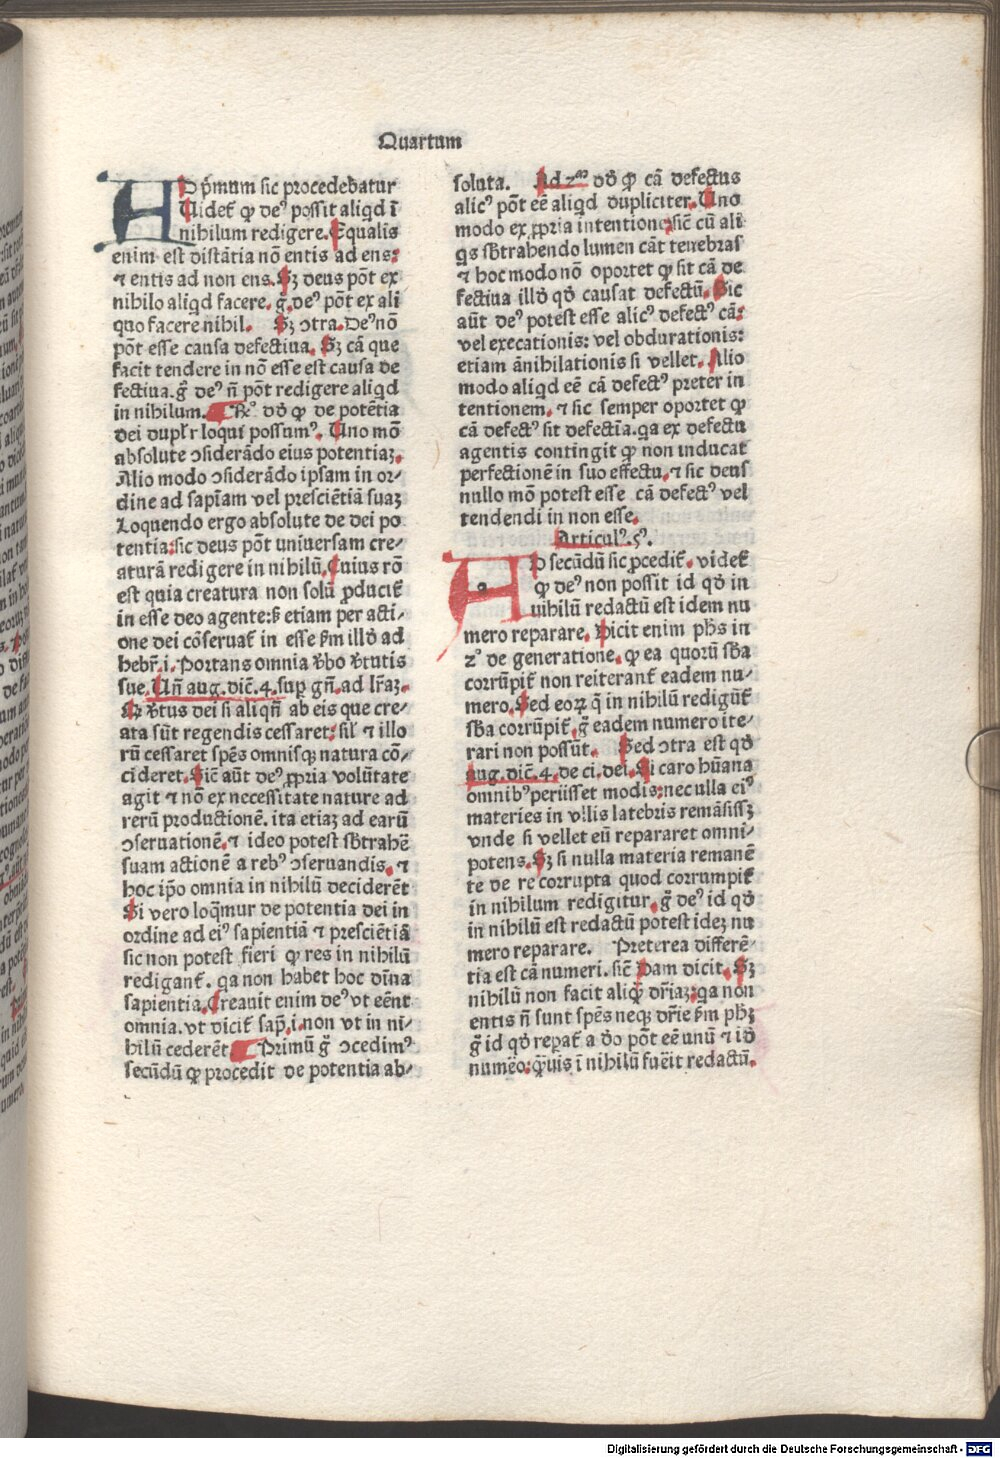 Quartum
AD p̄mum sic procedebatur
Uidet᷑ ꝙ deꝰ possit aliqd ī
nihilum redigere. Equalis
enim est distātia nō entis ad ens:
⁊ entis ad non ens. Sꝫ deus pōt ex
nihilo aliqd facere. g̊. deꝰ pōt ex ali
quo facere nihil. Sꝫ ↄtra. Deꝰ nō
pōt esse causa defectiua. Sꝫ cā que
facit tendere in nō esse est causa de
fectiua. g̊ deꝰ n̄ pōt redigere aliqd
in nihilum. R̄ꝰ dō ꝙ de potētia
dei dupl̓r loqui possumꝰ. Uno mō
absolute ↄsiderādo eius potentiaꝫ.
Alio modo ↄsiderādo ipsam in or⸗
dine ad sapīam vel presciētiā suaꝫ
Loquendo ergo absolute de dei po
tentia: sic deus pōt uniuersam cre⸗
aturā redigere in nihilū. Cuius rō
est quia creatura non solū ꝓducit᷑
in esse deo agente: sꝫ etiam per acti⸗
one dei cōseruat᷑ in esse ẜm illđ ad
hebr̄. i. Portans omnia v̓bo v̓tutis
sue. Un̄ aug. dic̄. 4. suꝑ gn̄. ad lr̄aꝫ.
ꝙ v̓tus dei si aliqn̄ ab eis que cre⸗
ata sūt regendis cessaret: sil̓ ⁊ illo
rū cessaret spēs omnisqꝫ natura cō⸗
cideret. Sic̄ aūt deꝰ ꝓpria volūtate
agit ⁊ nō ex necessitate nature ad
rerū productionē. ita etiaꝫ ad earū
ↄseruationē. ⁊ ideo potest sb̓trahē
suam actionē a rebꝰ ↄseruandis. ⁊
hoc ip̄o omnia in nihilū deciderēt
Si vero loq̄mur de potentia dei in
ordine ad eiꝰ sapientiā ⁊ presciētiā
sic non potest fieri ꝙ res in nihilū
redigant᷑. qa non habet hoc dīna
sapientia. Creauit enim deꝰ vt eēnt
omnia. vt dicit᷑ sap̄. i. non vt in ni⸗
hilū cederēt. Primū g̊ ↄcedimꝰ
secūdū ꝙ procedit de potentia ab⸗
soluta. Ad 2ᵐ dō ꝙ cā defectus
alicꝰ pōt eē aliqd dupliciter. Uno
modo ex ꝓpria intentione: sic̄ cū ali
qs sb̓trahendo lumen cāt tenebras
⁊ hoc modo nō oportet ꝙ sit cā de
fectiua illđ qđ causat defectū. Sic
aūt deꝰ potest esse alicꝰ defectꝰ cā:
vel execationis: vel obdurationis:
etiam ānihilationis si vellet. Alio
modo aliqd eē cā defectꝰ preter in
tentionem. ⁊ sic semper oportet ꝙ
cā defectꝰ sit defectīa. qa ex defectu
agentis contingit ꝙ non inducat
perfectionē in suo effectu. ⁊ sic deus
nullo mō potest esse cā defectꝰ vel
tendendi in non esse.
Articulꝰ. ꝯ.
AD secūdū sic ꝓcedit᷑. videt᷑
ꝙ deꝰ non possit id qđ in
nihilū redactū est idem nu
mero reparare. Dicit enim ph̄s in
2ᵒ de generatione. ꝙ ea quorū sb̓a
corrūpit᷑ non reiterant᷑ eadem nu⸗
mero. Sed eoꝝ q̄ in nihilū redigūt᷑
sb̓a corrūpit᷑. g̊ eadem numero ite⸗
rari non possūt. Sed ↄtra est qđ
Aug. dic̄. 4. de ci. dei. Si caro hūana
omnibꝰ perijsset modis: nec ulla eiꝰ
materies in v̓lis latebris remāsissꝫ
vnde si vellet eū repararet omni⸗
potens. Sꝫ si nulla materia remanē
te de re corrupta quod corrumpit᷑
in nihilum redigitur. g̊ deꝰ id qđ
in nihilū est redactū potest ideꝫ nu
mero reparare. Preterea differē⸗
tia est cā numeri. sic̄ Dam dicit. Sꝫ
nihilū non facit aliq̄ dr̄iaꝫ: qa non
entis n̄ sunt spēs neqꝫ dr̄ie ẜm ph̄ꝫ
g̊ id qđ repat᷑ a dō pōt eē unū ⁊ idē
numēo: q̄uis ī nihilū fuēit redactū.
Digitalisierung gefördert durch die Deutsche Forschungsgemeinschaft - DFG